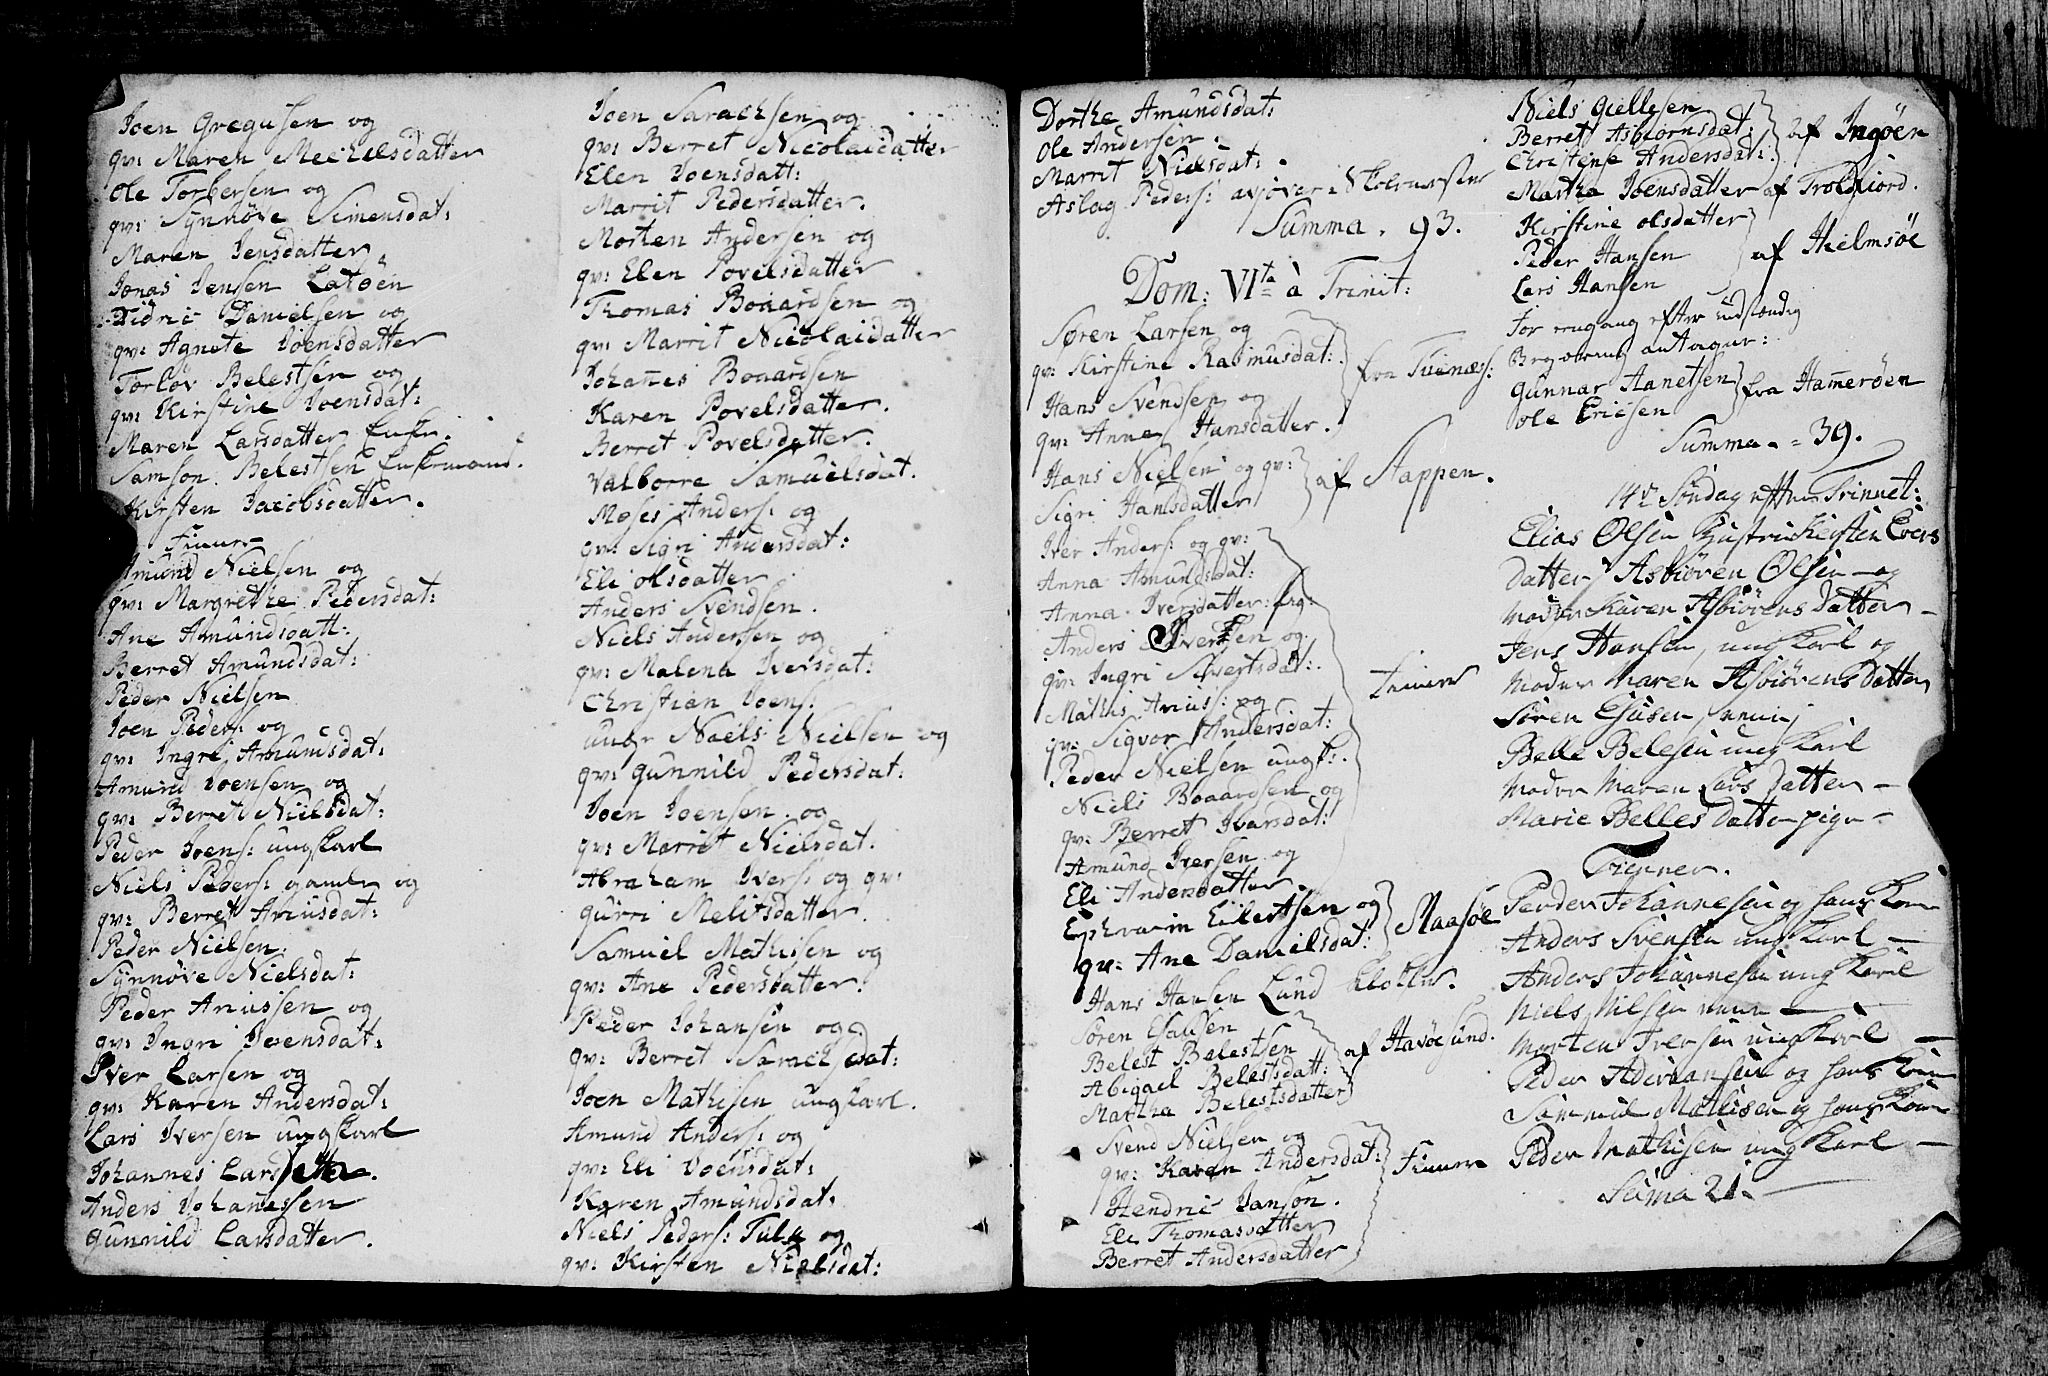 Joen Gregusen og
qv: Maren Mechelsdatter
Ole Torbersen og
qv: Synnöve Simensdat:
Maren Jensdatter
Jonas Jensen Latöen
Didric Danielsen og
qv: Agnete Joensdatter
Torlov Belestsen og
qv: Kirstine Joensdat:
Maren Larsdatter Enke.
Samson Belestsen Enkemand.
Kirsten Jacobsdatter.
Finner
Amund Nielsen og
qv: Margrethe Pedersdat:
Ane Amundsdatt:
Berret Amundsdat:
Peder Nielsen
Joen Peders: og
qv: Ingri Amundsdat:
Amund Joensen og
qv: Berret Nielsdat:
Peder Joens: ungkarl
Niels Peders: gamle og
qv: Berret Ariusdat:
Peder Nielsen.
Synnöve Nielsdat:
Peder Ariussen og
qv: Ingri Joensdat:
Iver Larsen og
qv: Karen Andersdat:
Lars Iversen ungkarl
Johannes Larsen.
Anders Johanessen
Gunnild Larsdatter.
Joen Sarachsen og
qv: Berret Nicolaidatter
Elen Joensdatt:
Marrit Pedersdatter.
Morten Andersen og
qv: Elen Povelsdatter
Thomas Boaardsen og
qv: Marrit Nicolaidatter
Johanes Boaardsen
Karen Povelsdatter.
Berret Povelsdatter.
Valborre Samuelsdat.
Moses Anders: og
qv: Sigri Andersdat:
Eli Olsdatter
Anders Svendsen.
Niels Andersen og
qv: Malena Iversdat:
Christian Joens:
unge Niels Nielsen og
qv: Gunnild Pedersdat:
Joen Joensen og
qv: Marrit Nielsdat.
Abraham Ivers: og qv:
Gurri Melitsdatter.
Samuel Mathisen og
qv: Ane Pedersdatter.
Peder Johansen og
qv: Berret Sarachsdat:
Joen Mathisen ungkarl.
Amund Anders: og
qv: Eli Joensdat:
Karen Amundsdat:
Niels Peders: Tula og
qv: Kirsten Nielsdat:
Dorthe Amundsdat:
Ole Andersen.
Marrit Nielsdat:
Aslag Peders:
Summa. 93.
Dom: VIta à Trinit:
Søren Larsen og
qv: Kirstine Rasmusdat:
Hans Svendsen og
qv: Anne Hansdatter.
fra Tuenæs:
Hans Nielsen og qv:
Sigri Hansdatter
af Stappen.
Iver Anders: og qv:
Anna Amundsdat:
Anna Iversdatter:
Anders Iversen og
qv: Ingri Sivertsdat:
Mathis Arius: og
qv: Sigvor Andersdat:
Peder Nielsen ungk:
Niels Boaardsen og
qv: Berret Ivarsdat:
Amund Iversen og
Eli Andersdatter
Finner
Ephraim Eilertsen og
qv: Ane Danielsdat:
Maasöe
Hans Hansen Lund Klokker.
Søren Esaussen
Belest Belestsen
Abigael Belestsdatt:
Martha Belestsdatter
af Havöesund.
Svend Nielsen og
qv: Karen Andersdat:
Hendric Janson.
Eli Thomasdatter
Berret Andersdatter
Finner
Niels Giellesen
Berret Asbiornsdat:
Christine Andersdat:
af Ingöen
Martha Joensdatter af Troldfiord.
Kirstine Olsdatter
Peder Hansen
Lars Hansen
af Hielmsöe
For eengang efter indstændig
Begæring antagne:
Gunnar Aanetsen
Ole Ericsen
fra Hamerøen
Summa = 39.
14de Söndag efter Trinnet:
Elias Olsen Hustru Kirsten Evers
Datter Asbiören Olsen og
Moder Karen Asbiörens Datter
Jens Hansen, ung Karl og
Moder Maren Asbiörens Datter
Sören Esusen,
Belle Belesen ung Karl
Moder Maren Lars Datter
Marie Belles Datter pige
Fienner.
Peeder Johannesen og hans Kone
Anders Svensen ung Karl
Anders Johannesen ung Karl
Niels Nilsen
Morten Iversen ung Karl
Peder Aderiansen og hans Kone
Sammul Mathisen og hans Kone
Peder Mathisen ung Karl
Suma 21.